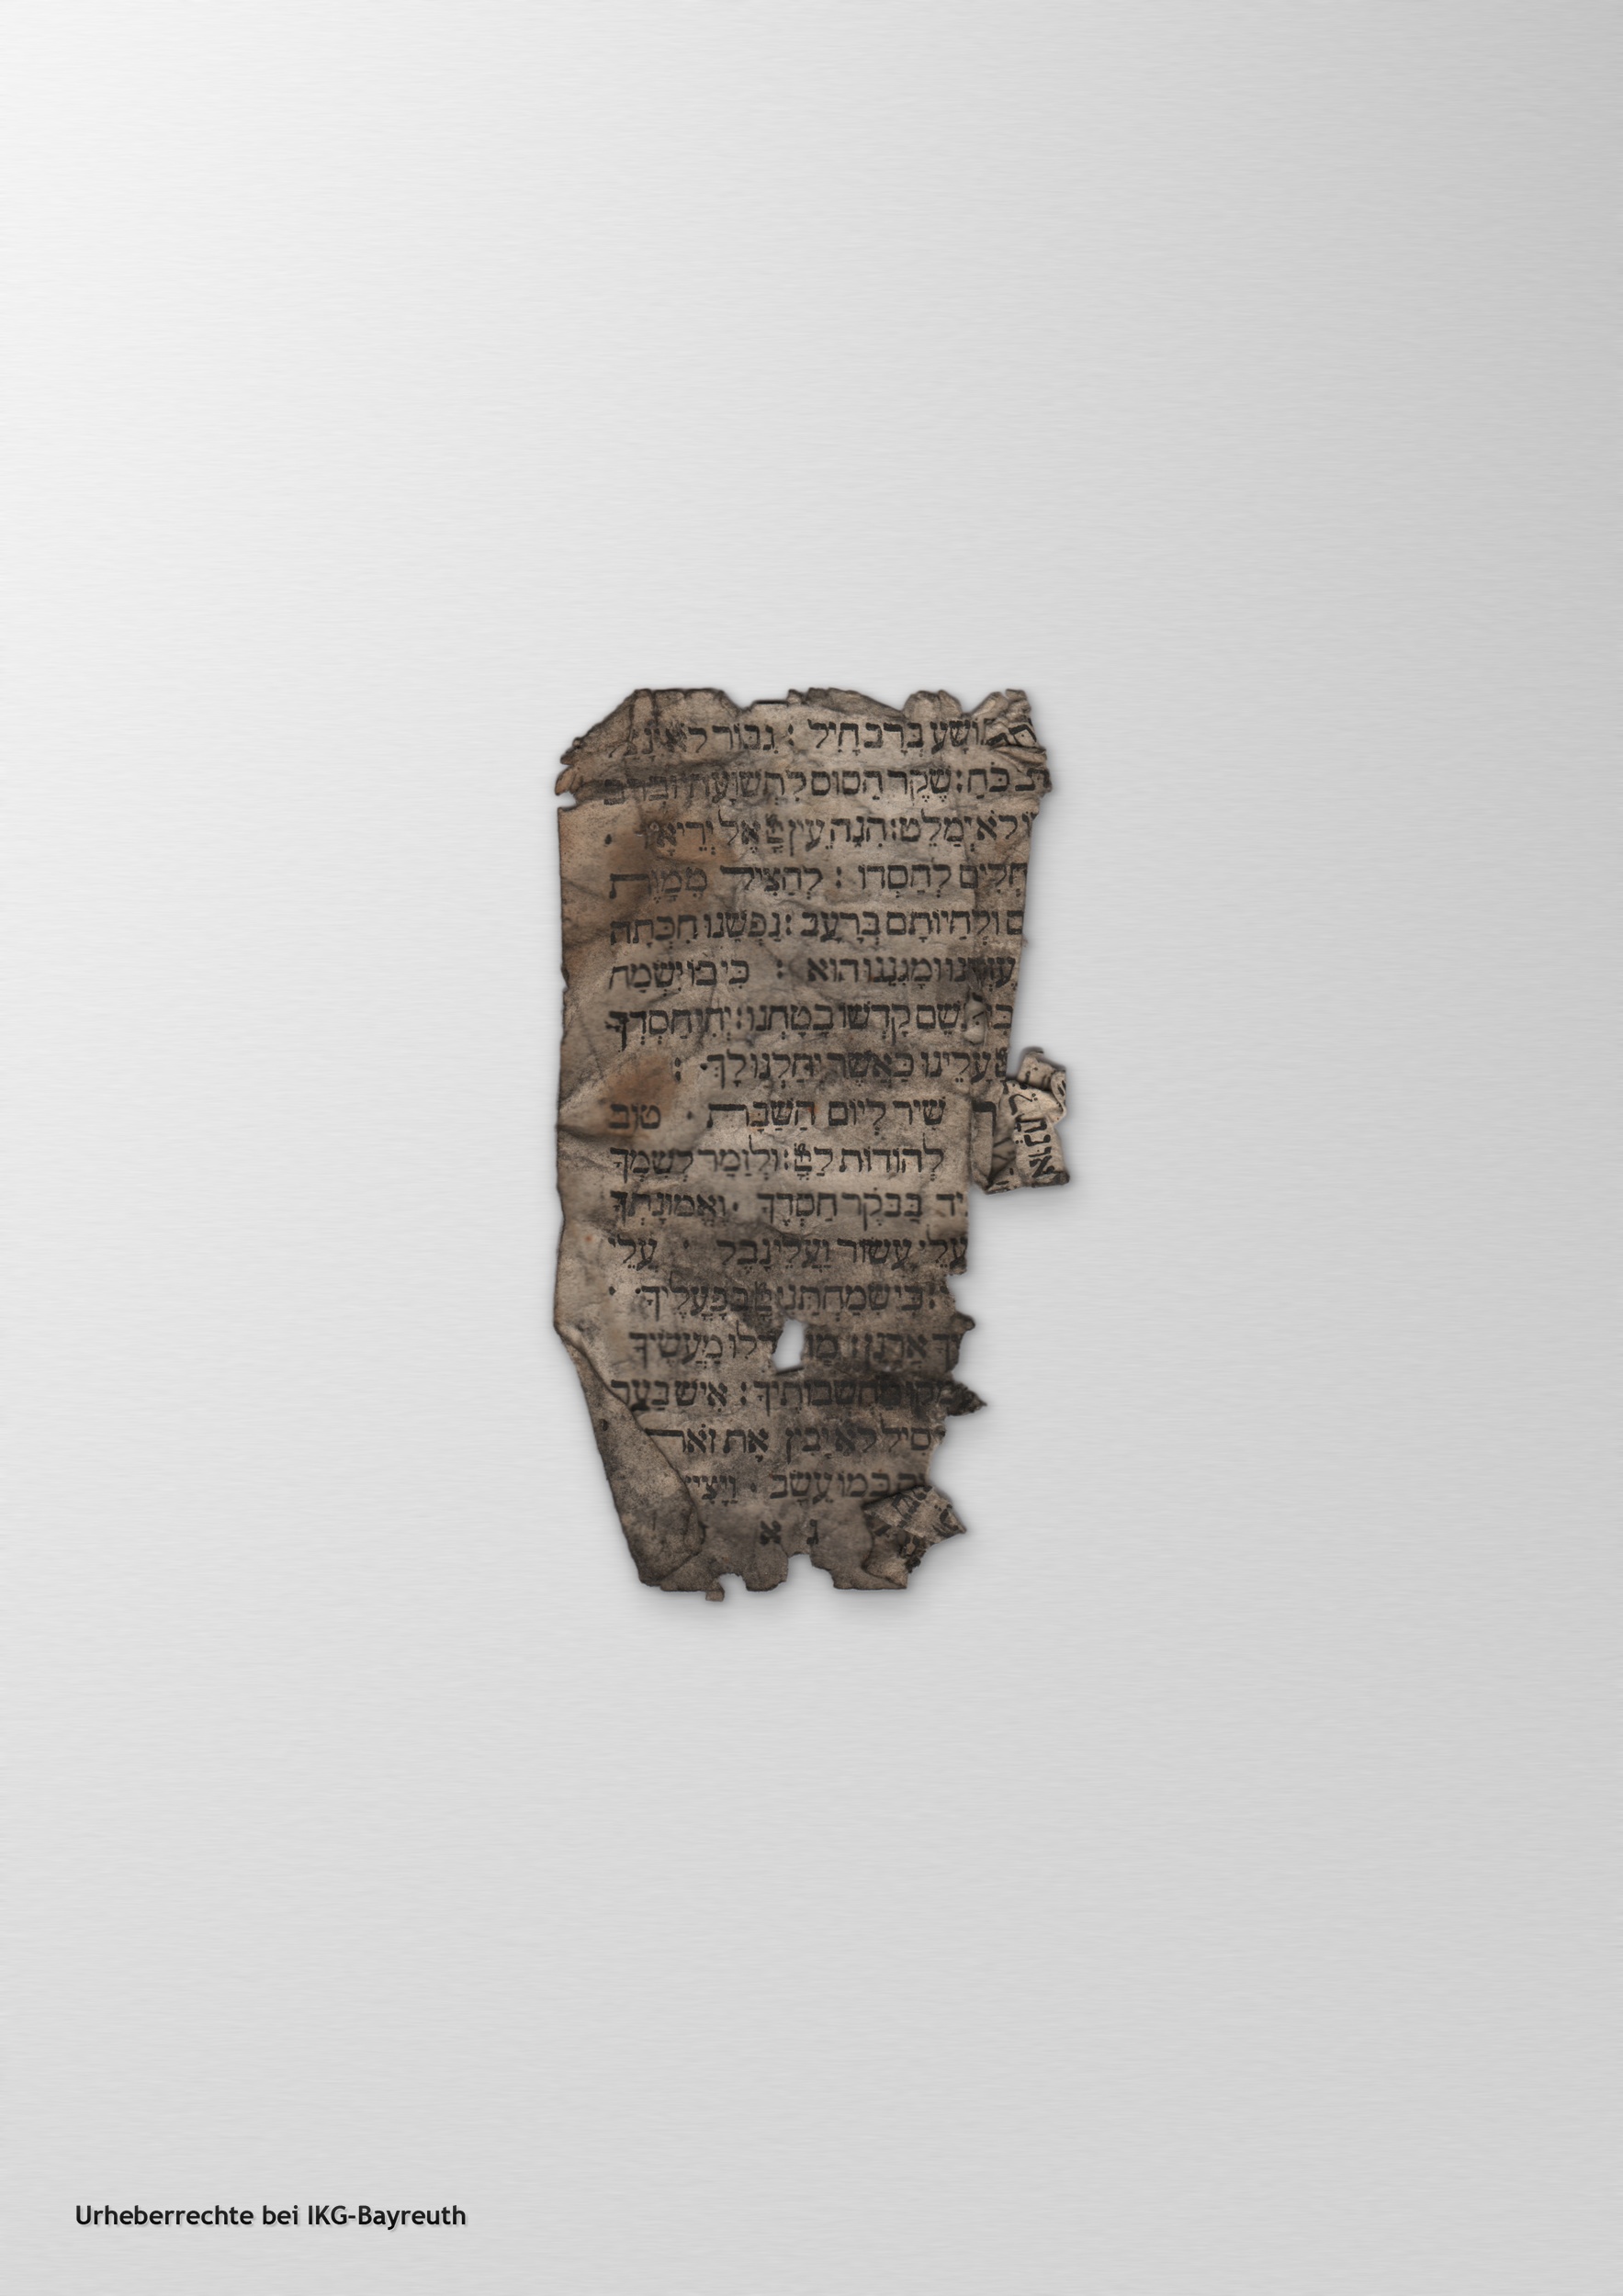 ושע ברב חיל : גבור לא ינצל
ב כח : שקר הסוס לתשועה וברב
לא ימלט : הנה עין אל יריאיו ·
חלים לחסדו : להציל ממות
ם ולחיותם ברעב : נפשנו חכתה
עזרנו ומגננו הוא : כי בו ישמח
שם קדשו בטחנו : יהי חסדך
עלינו כאשר יחלנו לך :
שיר ליום השבת · טוב
להודות לה : ולזמר לשמך
יד בבקר חסדך · ואמונתך
עלי עשור ועלי נבל · עלי
: כי שמחתני בפעליך ·
ך ארנן : מעשיך
מחשבותיך : איש בער
סיל לא יבין את זאת
במו עשב ·
נ א
Urheberrechte bei IKG-Bayreuth